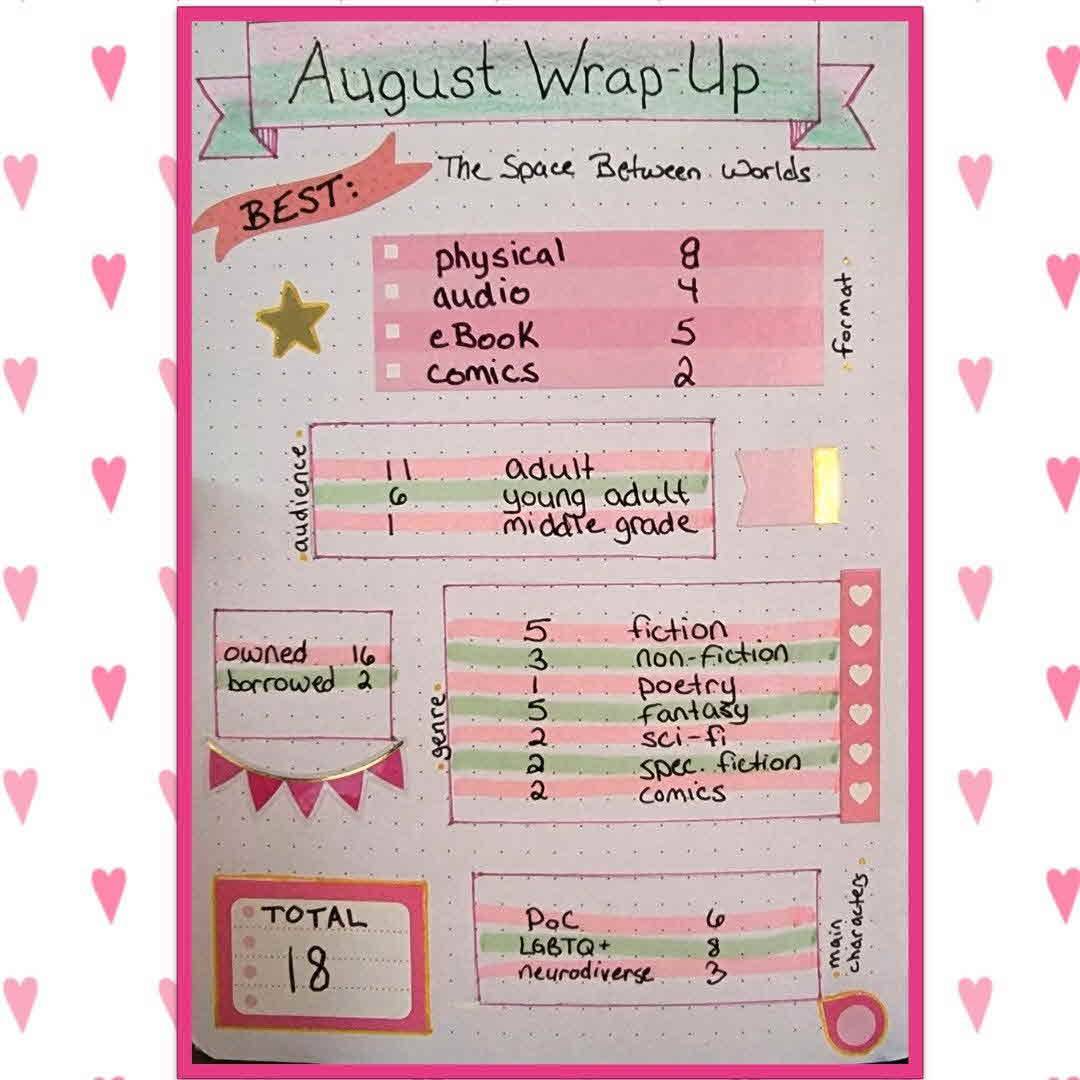 August Wrap-Up
BEST:
The Space Between Worlds
physical 8
audio 4
eBook 5
comics 2
format
audience
11 adult
6 young adult
1 middle grade
owned 16
borrowed 2
genre
5 fiction
3 non-fiction
1 poetry
5 fantasy
2 sci-fi
2 spec. fiction
2 comics
TOTAL
18
PoC 6
LGBTQ+ 8
neurodiverse 3
main
characters